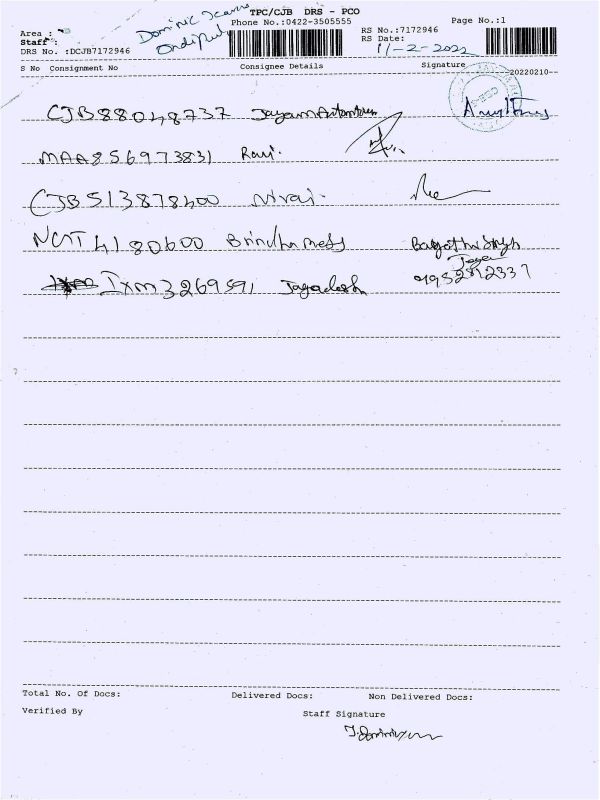 TPC/CJB DRS - PCO
Phone No.:0422-3505555
Page No.:1
Area :
Staff :
DRS No. :DCJB7172946
Dominic
RS No.:7172946
RS Date:
11-2-2022
S No Consignment No Consignee Details Signature
20220210
CJB88048737
MAA856973831 Ravi.
CJB513878400 Nirai.
NCIT4180600 Brindha
IXM3269591 Jagadesh
9952812337
Total No. Of Docs: Delivered Docs: Non Delivered Docs:
Verified By Staff Signature